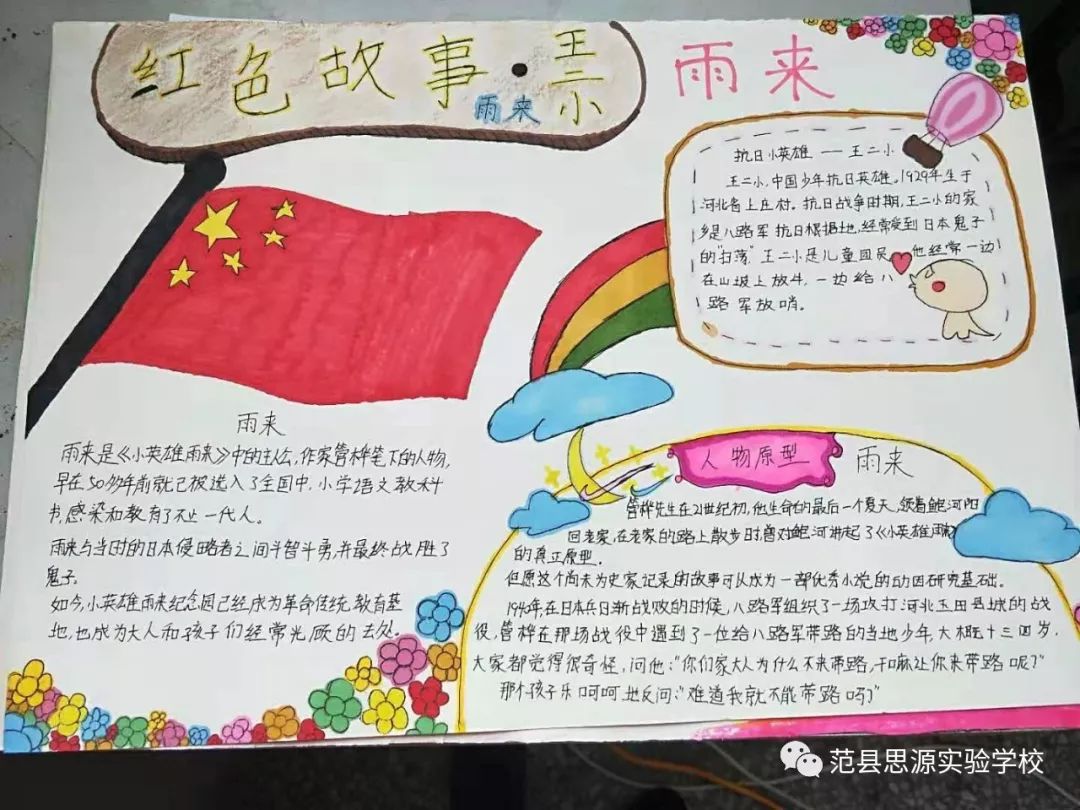 红色故事·王二小
雨来
雨来
抗日小英雄——王二小
王二小,中国少年抗日英雄。1929年生于
河北省上庄村。抗日战争时期,王二小的家
乡是八路军抗日根据地,经常受到日本鬼子
的"扫荡"王二小是儿童团员,他经常一边
在山坡上放牛,一边给八
路军放哨。
雨来
雨来是《小英雄雨来》中的主人公,作家管桦笔下的人物,
早在50多年前就已被选入了全国中,小学语文教科
书,感染和教育了不止一代人。
雨来与当时的日本侵略者之间斗智斗勇并最终战胜了
鬼子。
如今,小英雄雨来纪念园已经成为革命传统教育基
地,也成为大人和孩子们经常光顾的去处。
人物原型
雨来
管桦先生在21世纪初,他生命的最后一个夏天,领着鲍河阳
回老家,在老家的路上散步时,曾对鲍河讲起了《小英雄雨来》
的真正原型。
但愿这个尚未为史家记录的故事可以成为一部优秀小说的动因研究基础。
1942年,在日本兵日渐战败的时候,八路军组织了一场攻打河北玉田县城的战
役,管桦在那场战役中遇到了一位给八路军带路的当地少年,大概十三四岁,
大家都觉得很奇怪,问他:"你们家大人为什么不来带路,干嘛让你来带路呢?"
那个孩子乐呵呵地反问:"难道我就不能带路吗?"
范县思源实验学校